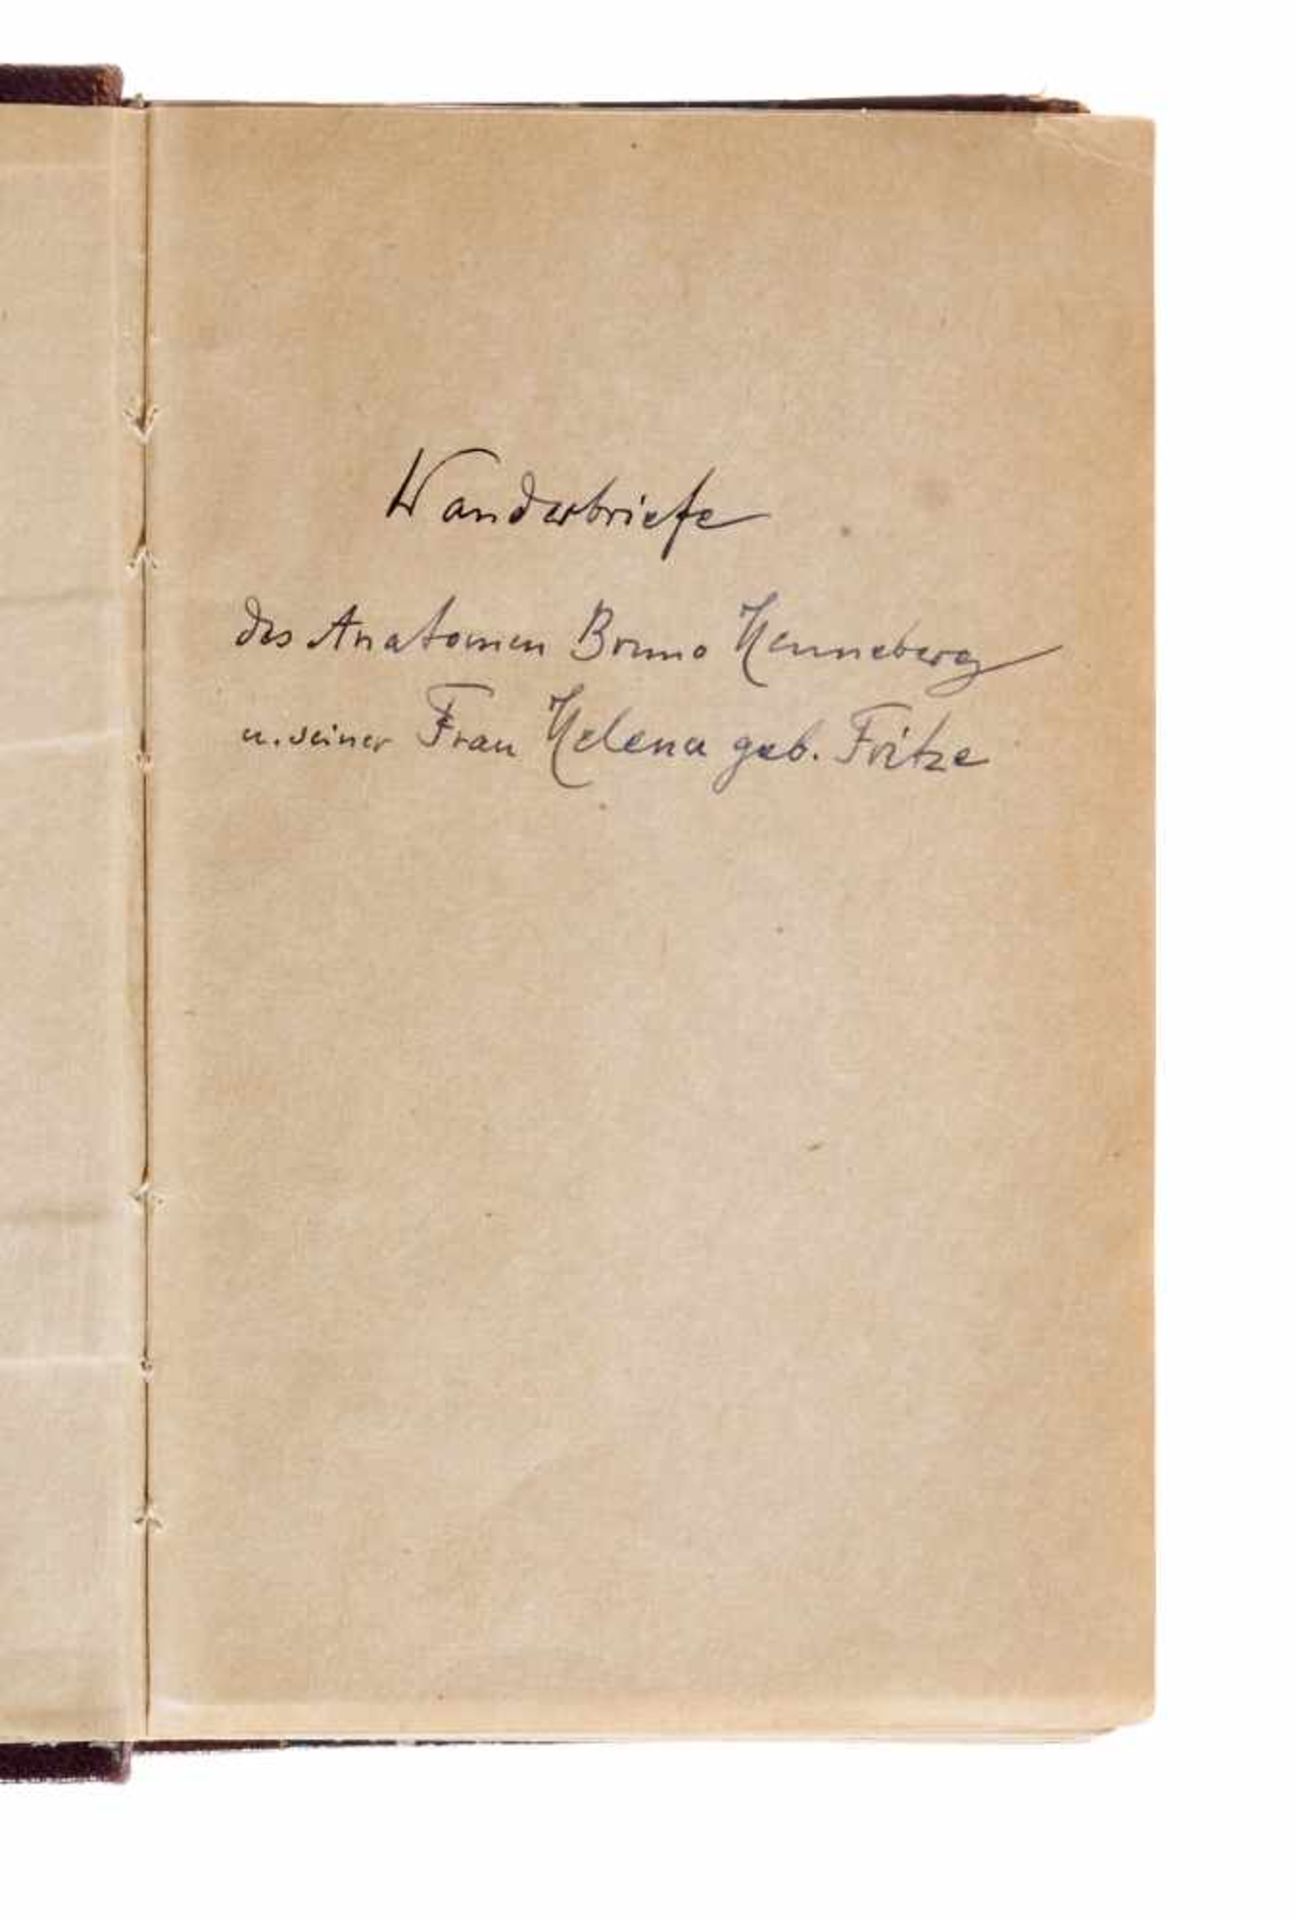 Wanderbriefe
des Anatomen Bruno Henneberg
u. seiner Frau Helena geb. Fritze